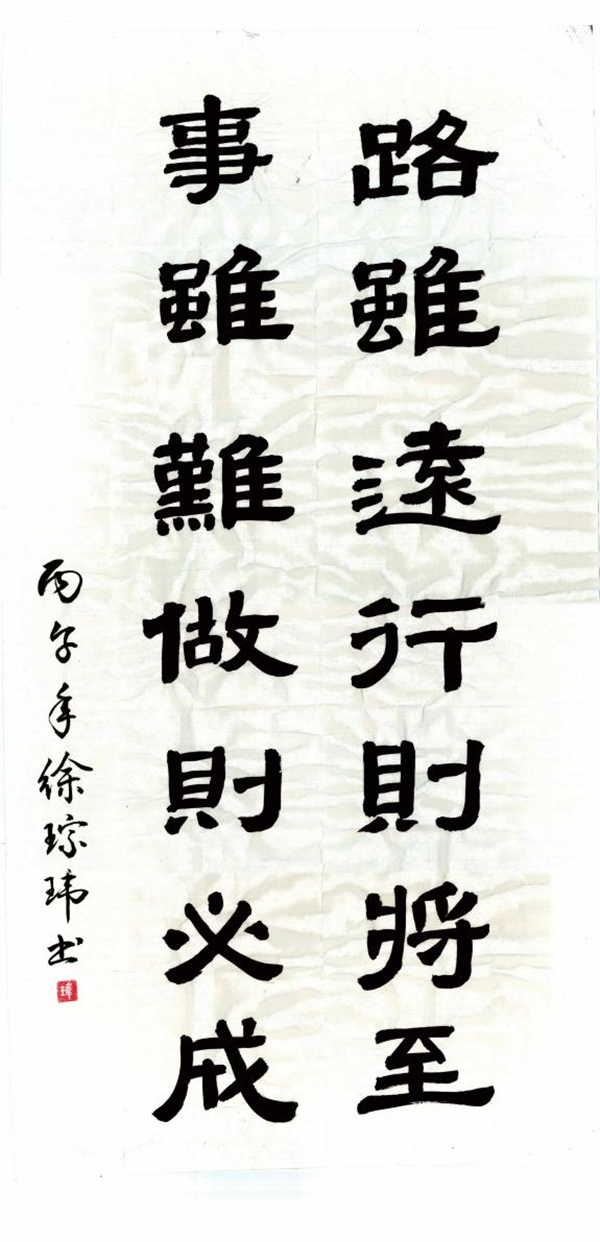 路雖遠行則將至
事雖難做則必成
丙午年徐琮玮书
瑋